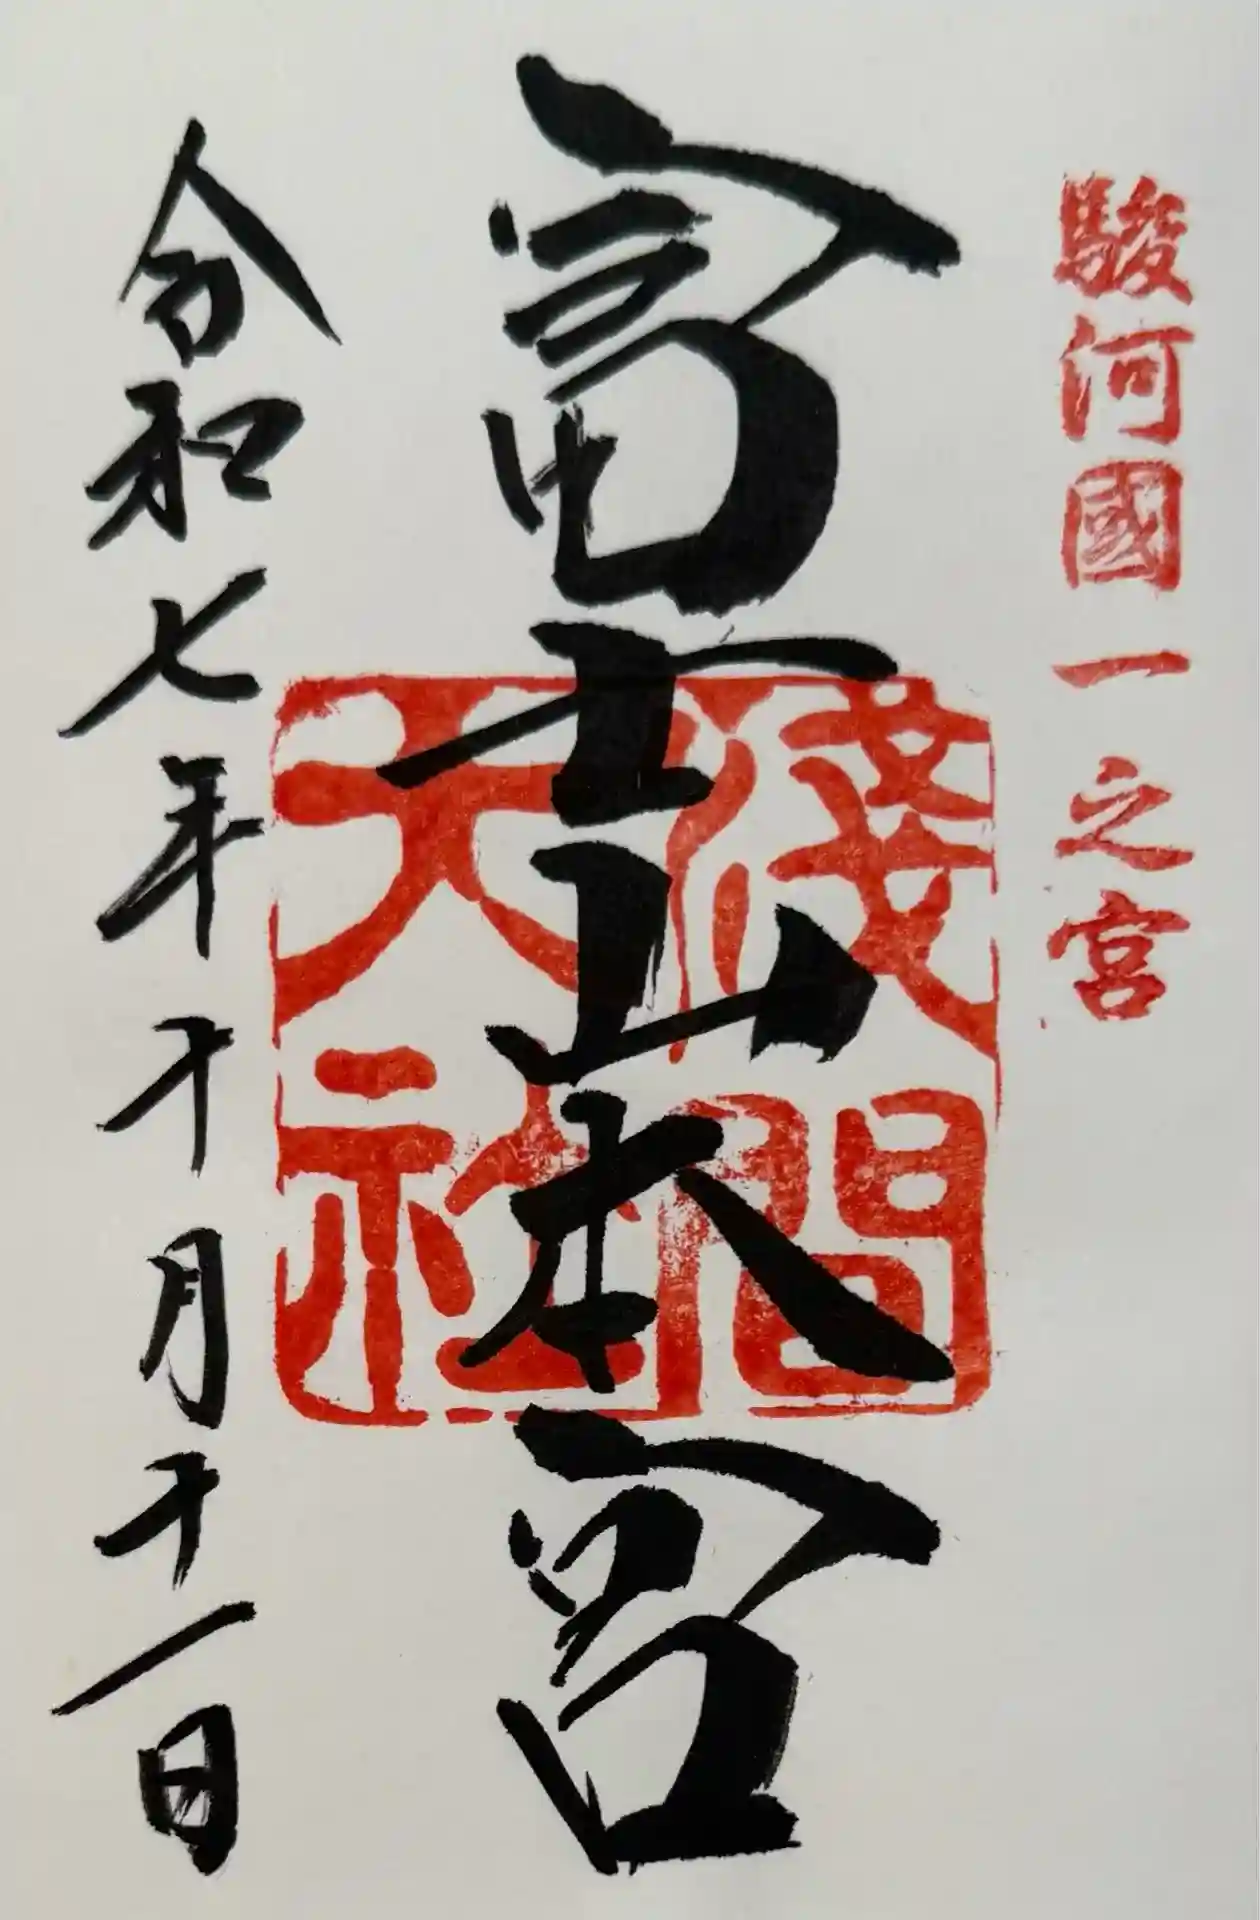 駿河國一之宮
富士山本宮
淺間
大社
令和七年十月十一日